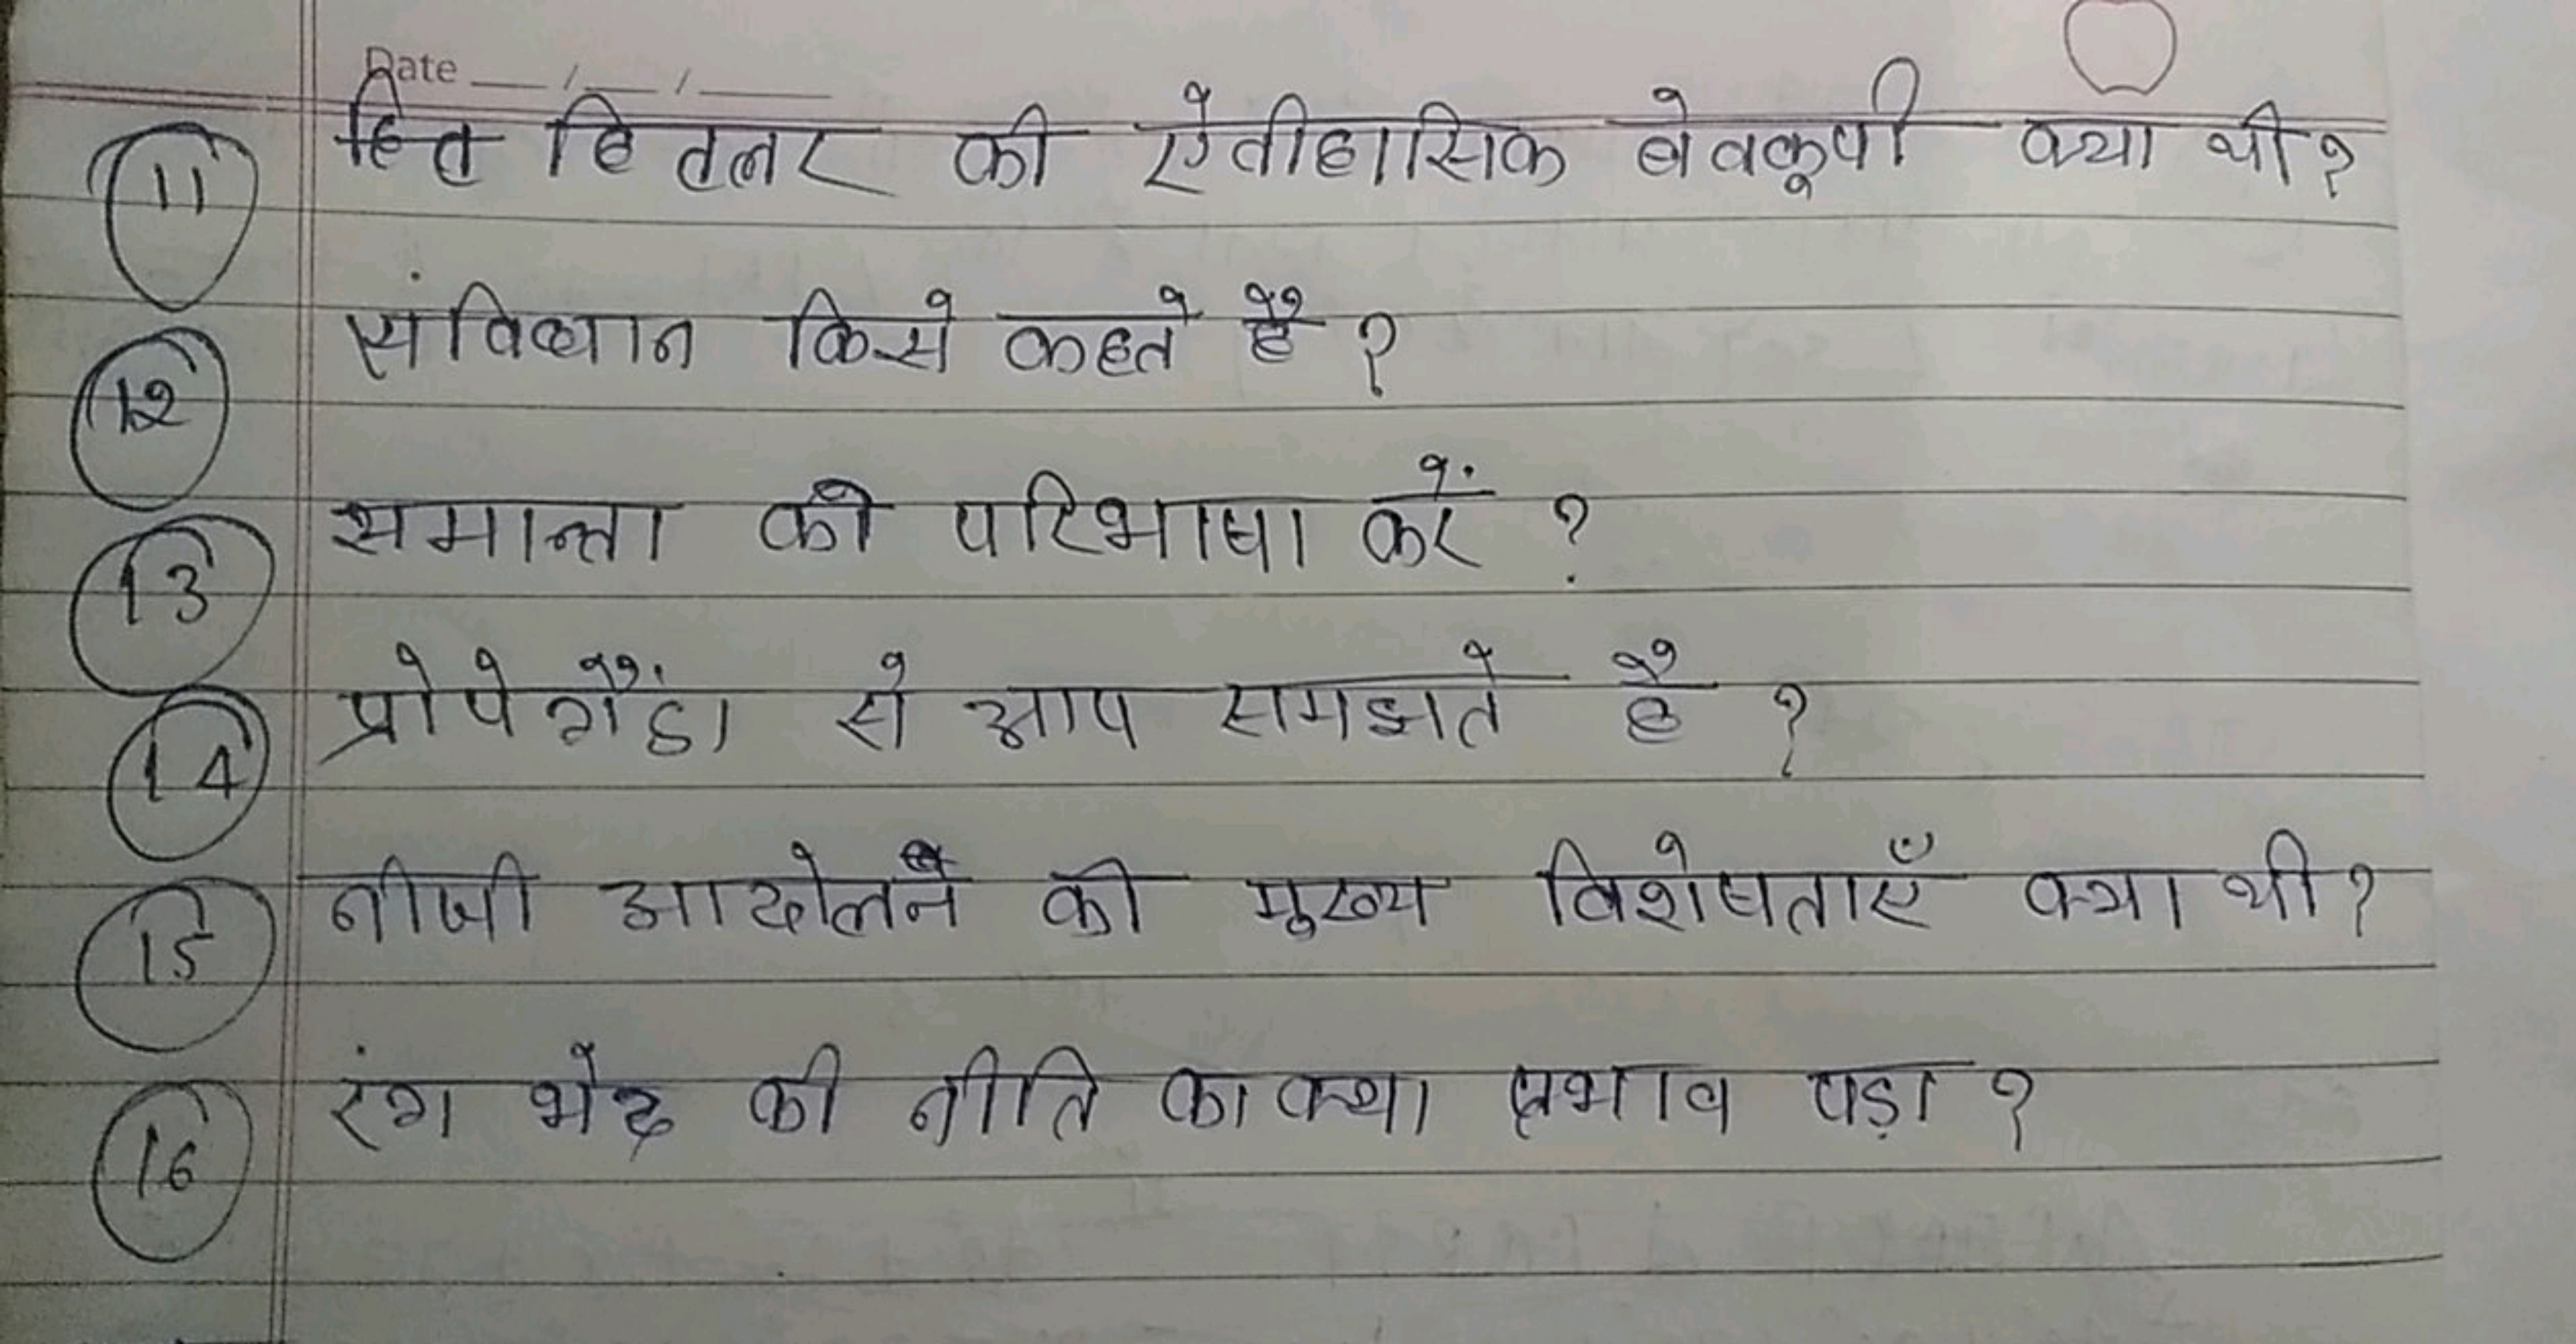 Date __/__/____
11 हित हितलर की ऐतीहासिक बेवकूपी क्या थी?
12 संविधान किसे कहते है ?
13 समान्ता की परिभाषा करें ?
14 प्रोपेगैंडा से आप समझते है ?
15 नीजी आदोलन की मुख्य विशेषताएँ क्या थी?
16 रंग भेद की नीति का क्या प्रभाव पड़ा ?